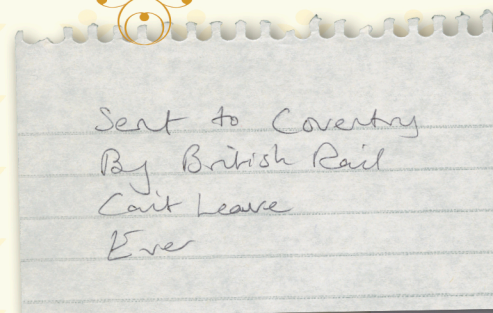 Sent to Coventry
By British Rail
Can't Leave
Ever